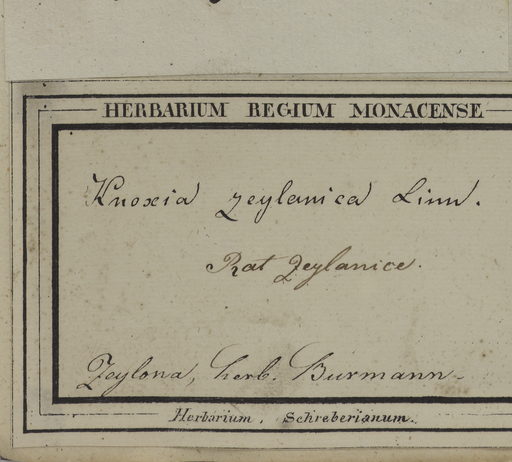 HERBARIUM REGIUM MONACENSE
Knoxia zeylanica Linn.
Rat Zeylanice.
Zeylona, herb. Burmann
Herbarium. Schreberianum.